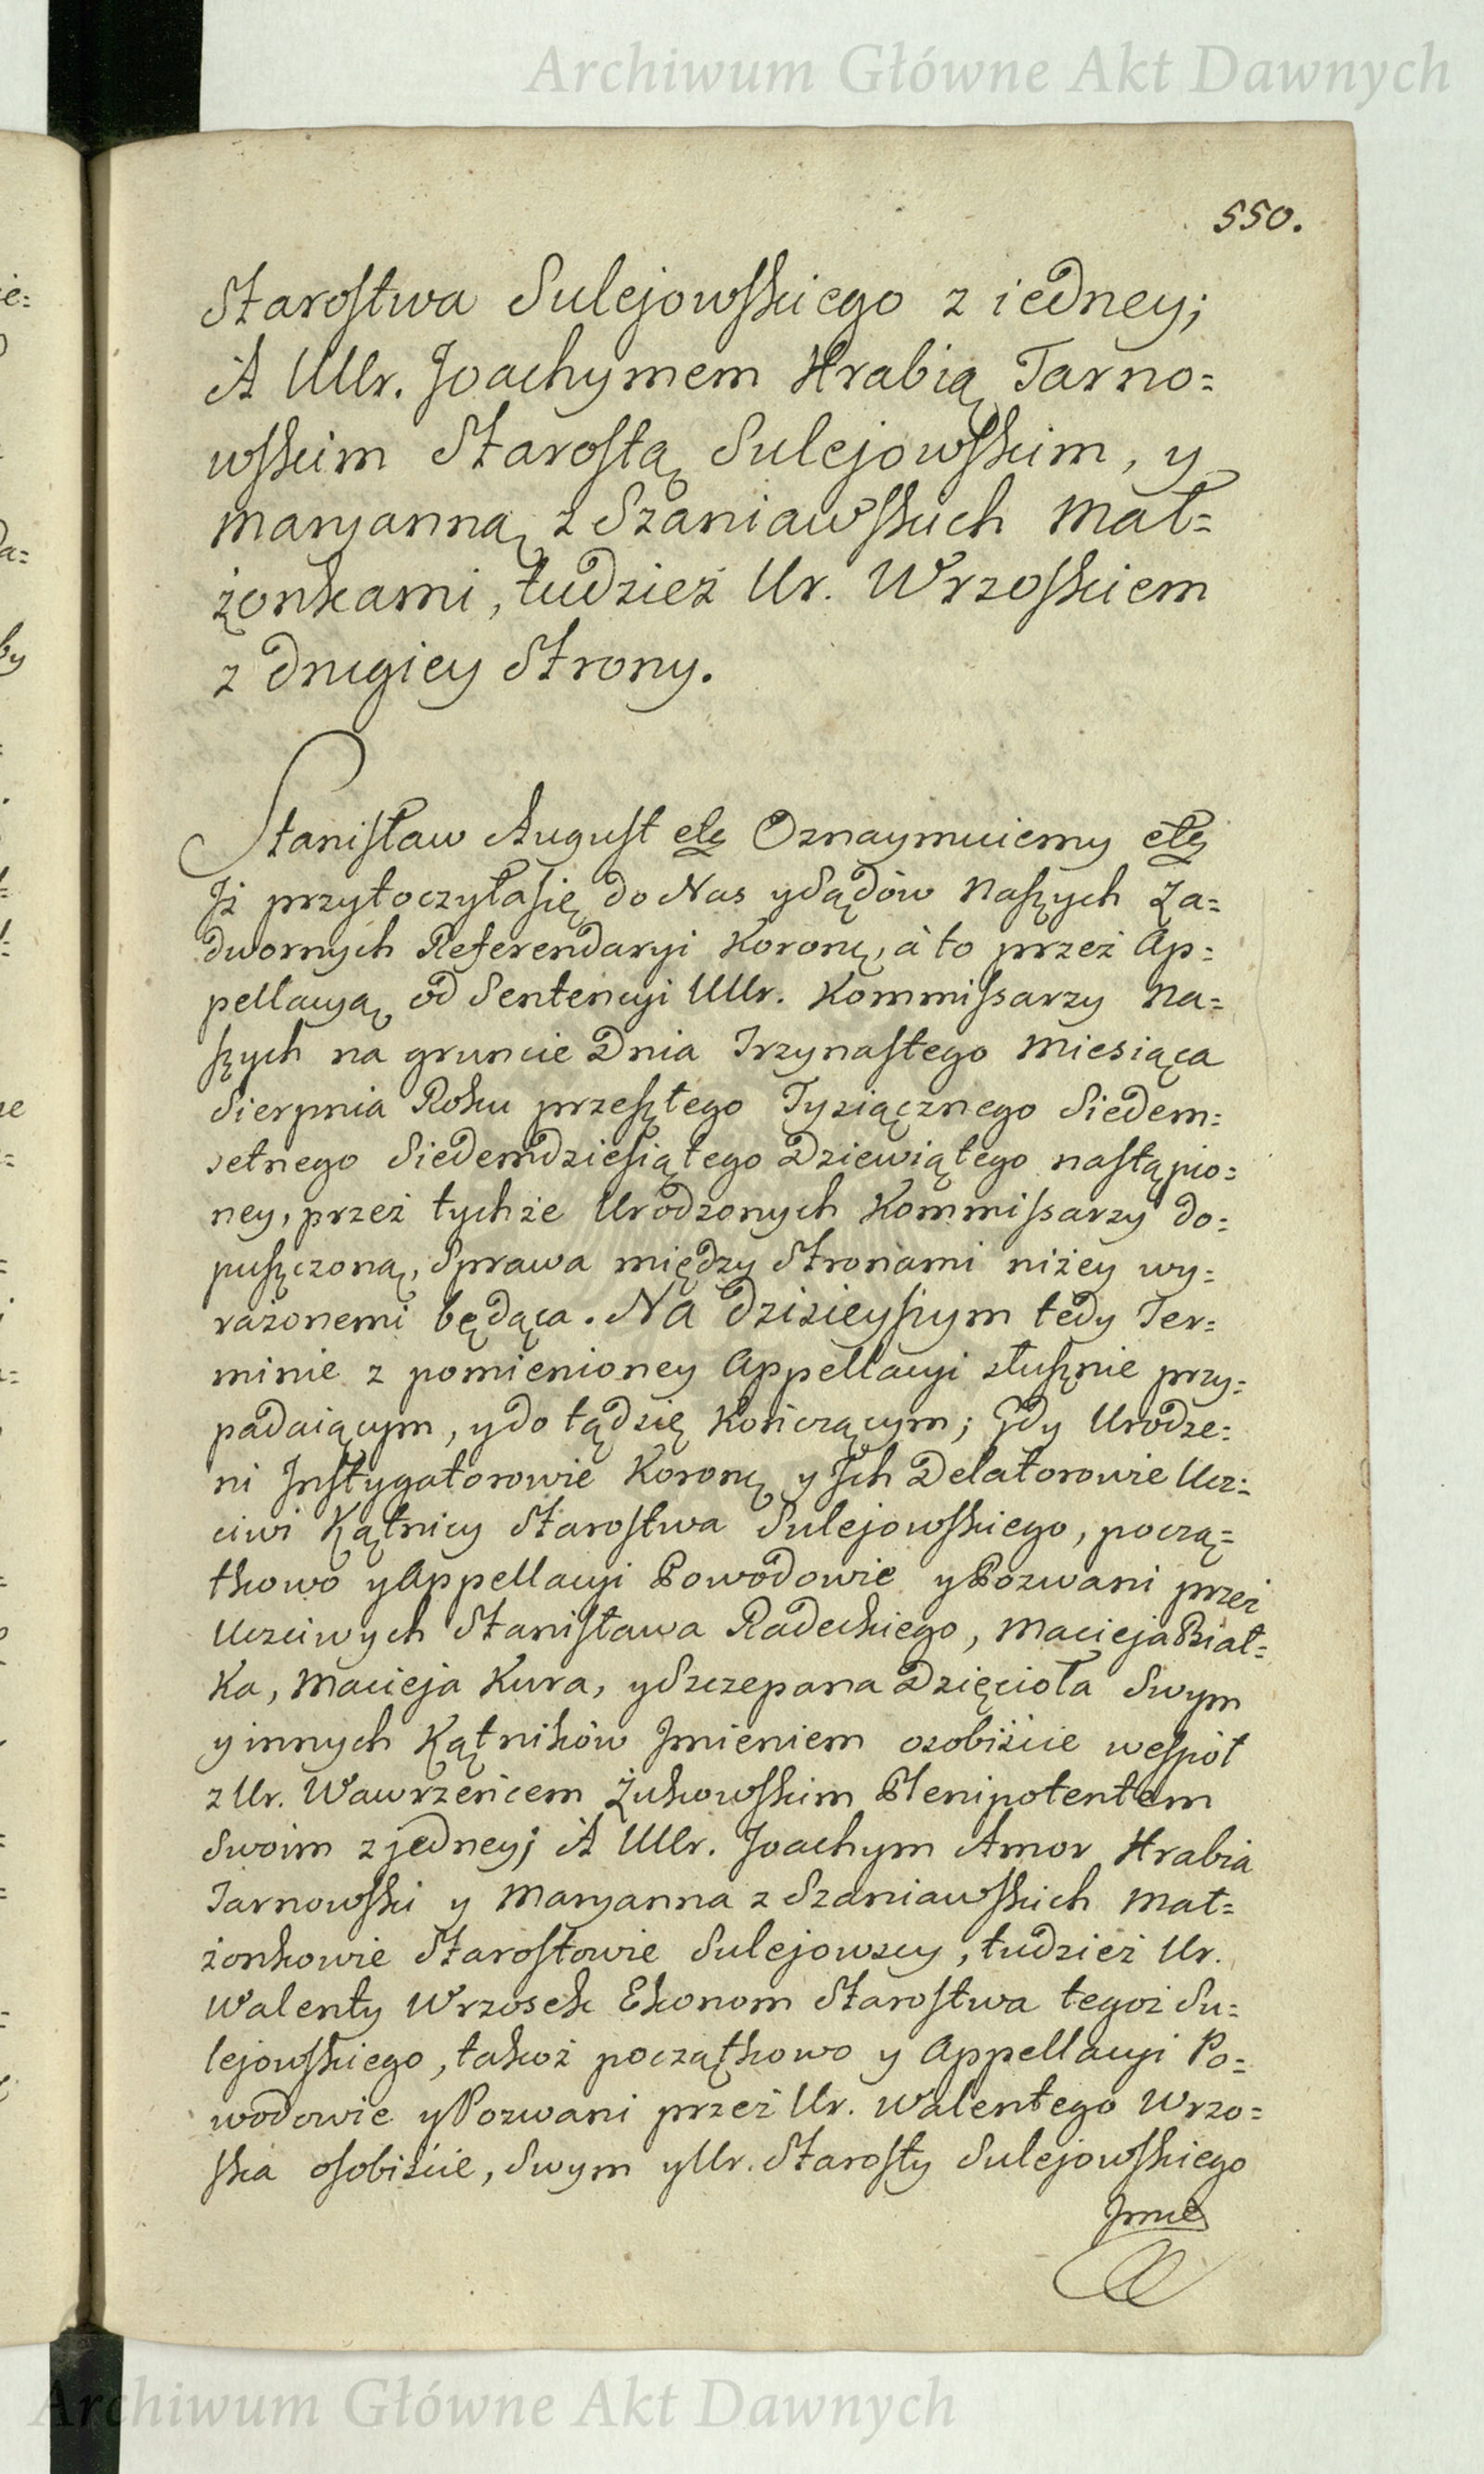 Archiwum Główne Akt Dawnych
550.
Starostwa Sulejowskiego z iedney;
A UUr. Joachymem Hrabią Tarno=
wskim Starostą Sulejowskim, y
Maryanną z Szaniawskich Mał=
żonkami, tudzież Ur. Wrzoskiem
z drugiey Strony.
Stanisław August etc Oznaymuiemy etc
Iż przytoczyłasię do Nas y Sądów Naszych Za=
dwornych Referendaryi Koronn, à to przez Ap=
pellacyą od Sentencyi UUr. Kommissarzy Na=
szych na gruncie Dnia Trzynastego Miesiąca
Sierpnia Roku przeszłego Tysiącznego Siedem=
setnego Siedemdziesiątego Dziewiątego nastąpio=
ney, przez tychże Urodzonych Kommissarzy do=
puszczoną, Sprawa między Stronami niżey wy=
rażonemi będąca. Na dzisieyszym tedy Ter=
minie z pomienioney Appellacyi słusznie przy=
padaiącym, y do tądsię Kończącym; Gdy Urodze=
ni Instygatorowie Koronn y Ich Delatorowie Ucz=
ciwi Kątnicy Starostwa Sulejowskiego, począ=
tkowo y Appellacyi Powodowie y Pozwani przez
Uczciwych Stanisława Radeckiego, Macieja Biał=
Ka, Macieja Kura, y Szczepana Dzięcioła Swym
y innych Kątników Imieniem osobiście wespół
z Ur. Wawrzeńcem Żukowskim Plenipotentem
Swoim z jedney; A UUr. Joachym Amor Hrabia
Tarnowski y Maryanna z Szaniawskich Mał=
żonkowie Starostowie Sulejowscy, tudzież Ur.
Walenty Wrzosek Ekonom Starostwa tegoż Su=
lejowskiego, także początkowo y Appellacyi Po=
wodowie y Pozwani przez Ur. Walentego Wrzo=
ska osobiście, Swym y Ur. Starosty Sulejowskiego
Imie
Archiwum Główne Akt Dawnych